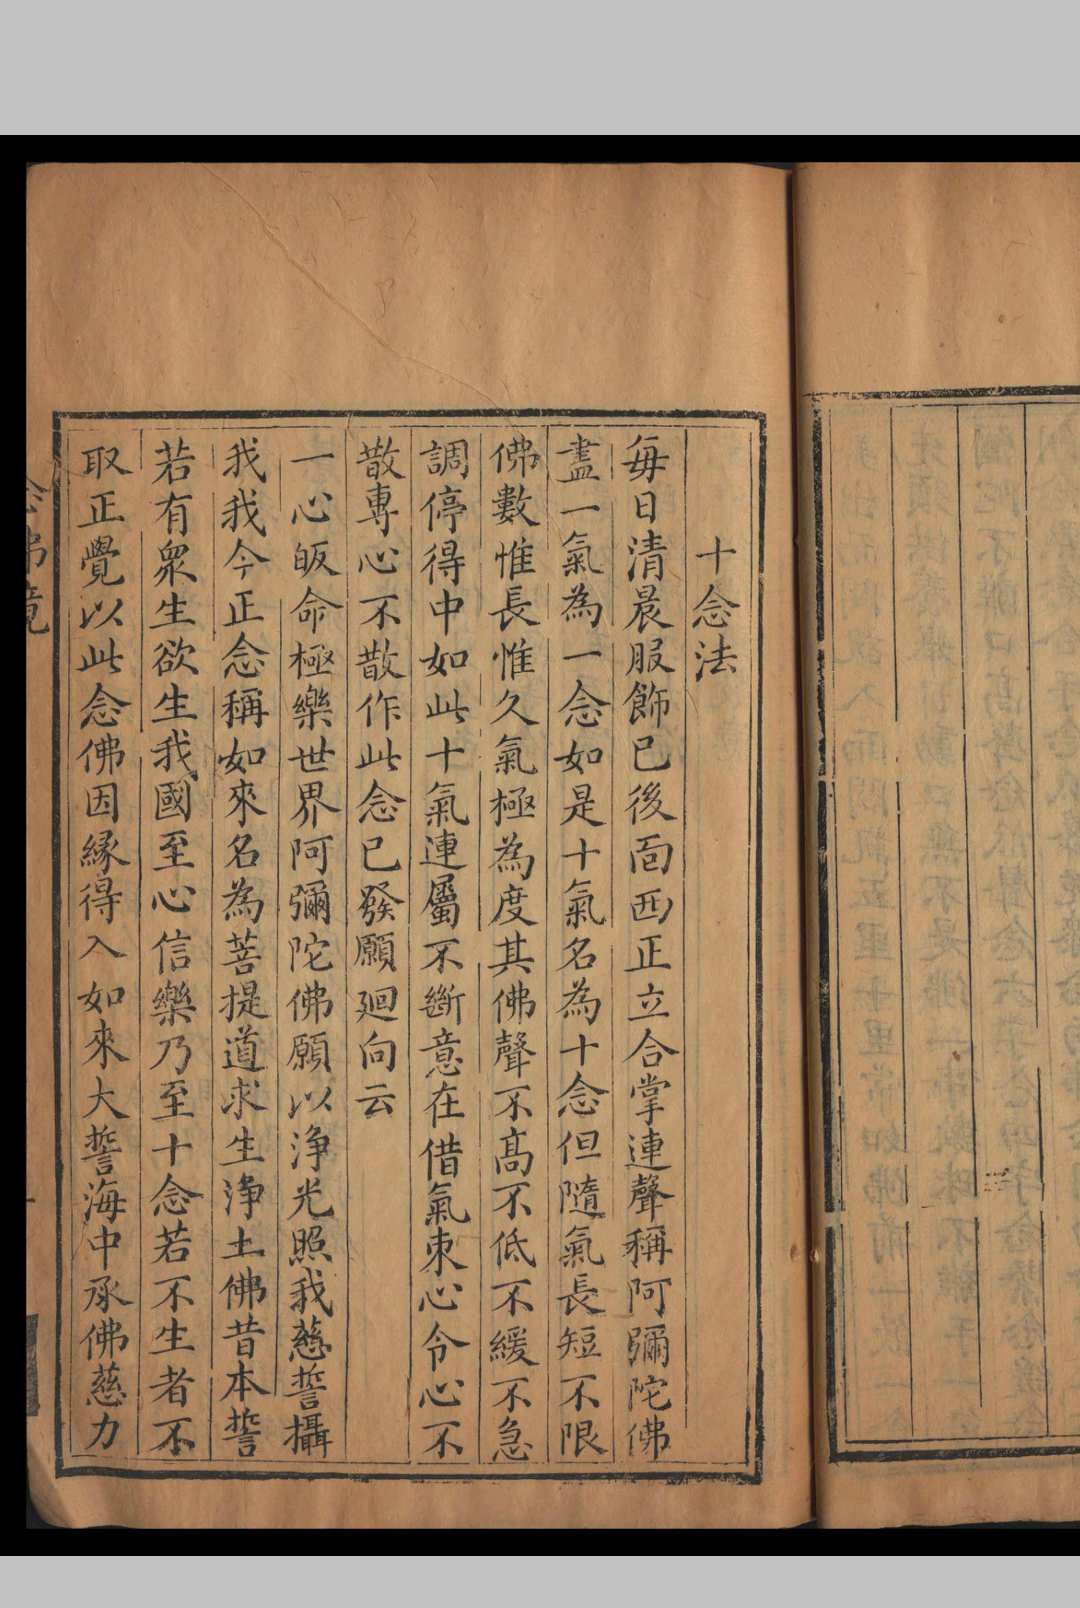 十念法
每日清晨服飾已後面西正立合掌連聲稱阿彌陀佛
盡一氣為一念如是十氣名為十念但隨氣長短不限
佛數惟長惟久氣極為度其佛聲不高不低不緩不急
調停得中如此十氣連屬不斷意在借氣束心令心不
散專心不散作此念已發願廻向云
一心皈命極樂世界阿彌陀佛願以淨光照我慈誓攝
我我今正念稱如來名為菩提道求生淨土佛昔本誓
若有衆生欲生我國至心信樂乃至十念若不生者不
取正覺以此念佛因緣得入如來大誓海中承佛慈力
念佛鏡